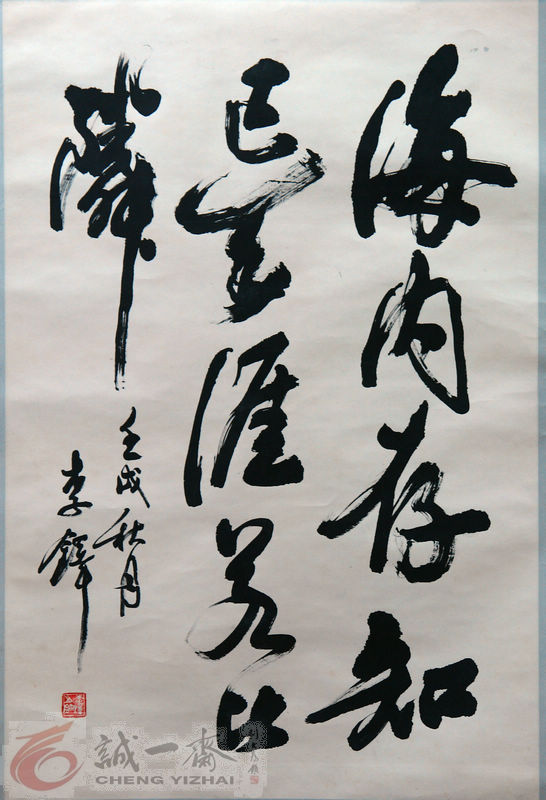 海内存知
己天涯若比
隣
壬戌秋月
李鐸
誠一齋
CHENG YIZHAI